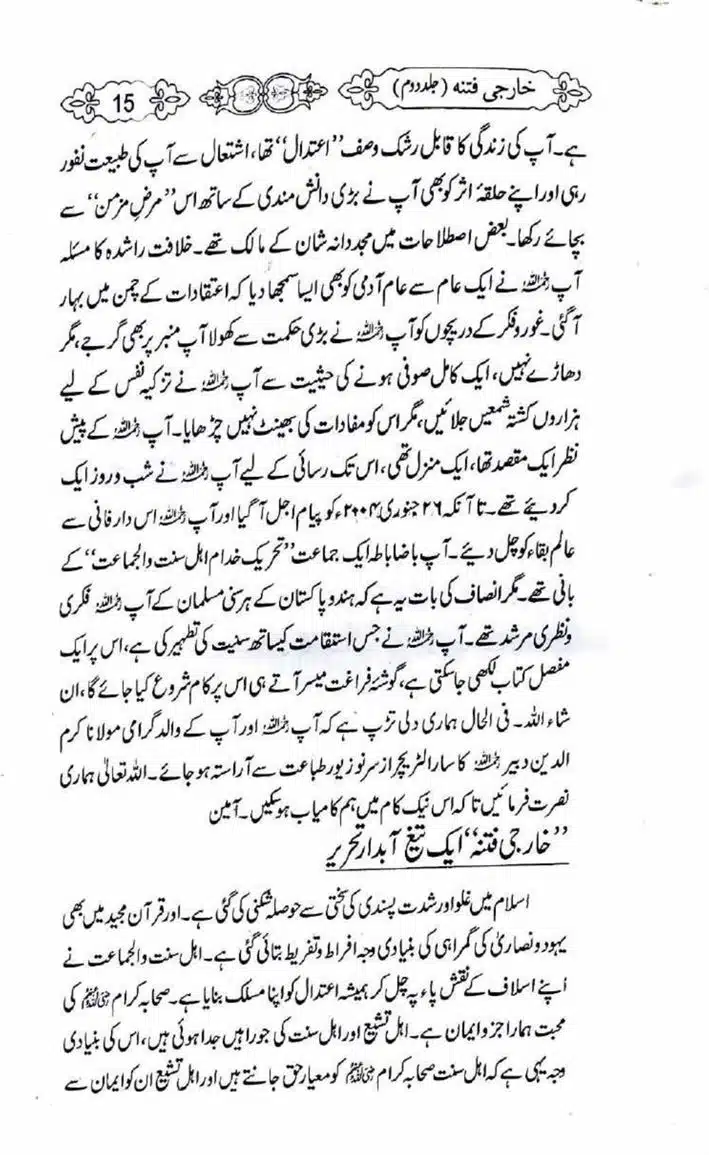 خارجی فتنہ (جلد دوم)
15
ہے۔ آپ کی زندگی کا قابل رشک وصف ’’اعتدال‘‘ تھا، اشتعال سے آپ کی طبیعت نفور
رہی اور اپنے حلقۂ اثر کو بھی آپ نے بڑی دانش مندی کے ساتھ اس ’’مرضِ مزمن‘‘ سے
بچائے رکھا۔ بعض اصطلاحات میں مجددانہ شان کے مالک تھے۔ خلافت راشدہ کا مسئلہ
آپ رحمہ اللہ نے ایک عام سے عام آدمی کو بھی ایسا سمجھا دیا کہ اعتقادات کے چمن میں بہار
آگئی۔ غور و فکر کے دریچوں کو آپ رحمہ اللہ نے بڑی حکمت سے کھولا آپ منبر پر بھی گرجے، مگر
دھاڑے نہیں، ایک کامل صوفی ہونے کی حیثیت سے آپ رحمہ اللہ نے تزکیہ نفس کے لیے
ہزاروں کشتہ شمعیں جلائیں، مگر اس کو مفادات کی بھینٹ نہیں چڑھایا۔ آپ رحمہ اللہ کے پیش
نظر ایک مقصد تھا، ایک منزل تھی، اس تک رسائی کے لیے آپ رحمہ اللہ نے شب و روز ایک
کر دیئے تھے۔ تا آنکہ ۲۶ جنوری ۲۰۰۴ء کو پیام اجل آگیا اور آپ رحمہ اللہ اس دار فانی سے
عالم بقاء کو چل دیئے۔ آپ باضابطہ ایک جماعت ’’تحریک خدام اہل سنت والجماعت‘‘ کے
بانی تھے۔ مگر انصاف کی بات یہ ہے کہ ہند و پاکستان کے ہر سنی مسلمان کے آپ رحمہ اللہ فکری
و نظری مرشد تھے۔ آپ رحمہ اللہ نے جس استقامت کیساتھ سنیت کی تطہیر کی ہے، اس پر ایک
مفصل کتاب لکھی جاسکتی ہے، گوشۂ فراغت میسر آتے ہی اس پر کام شروع کیا جائے گا، ان
شاء اللہ۔ فی الحال ہماری دلی تڑپ ہے کہ آپ رحمہ اللہ اور آپ کے والد گرامی مولانا کرم
الدین دبیر رحمہ اللہ کا سارا لٹریچر از سر نو زیور طباعت سے آراستہ ہو جائے۔ اللہ تعالیٰ ہماری
نصرت فرمائیں تاکہ اس نیک کام میں ہم کامیاب ہوسکیں۔ آمین
’’خارجی فتنہ‘‘ ایک تیغ آبدار تحریر
اسلام میں غلو اور شدت پسندی کی سختی سے حوصلہ شکنی کی گئی ہے۔ اور قرآن مجید میں بھی
یہود و نصاریٰ کی گمراہی کی بنیادی وجہ افراط و تفریط بتائی گئی ہے۔ اہل سنت والجماعت نے
اپنے اسلاف کے نقش پاء پہ چل کر ہمیشہ اعتدال کو اپنا مسلک بنایا ہے۔ صحابہ کرام رضی اللہ عنہم کی
محبت ہمارا جزو ایمان ہے۔ اہل تشیع اور اہل سنت کی جو راہیں جدا ہوئی ہیں، اس کی بنیادی
وجہ یہی ہے کہ اہل سنت صحابہ کرام رضی اللہ عنہم کو معیار حق جانتے ہیں اور اہل تشیع ان کو ایمان سے